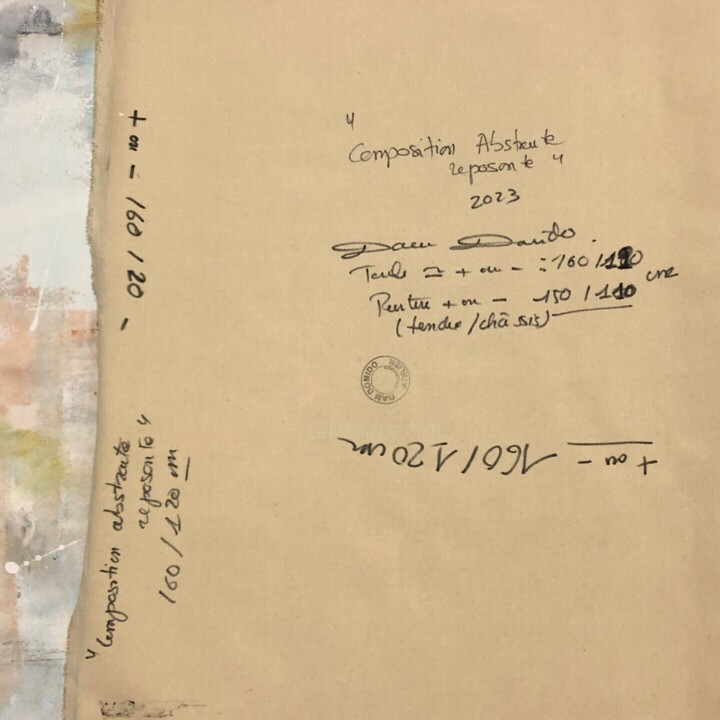 "
Composition Abstraite
reposante "
2023
Dam Domido.
Toile ≃ + ou - : 160 / 120 cm
Peinture + ou - 150 / 110
(tendue / châssis)
DAM DOMIDO
+ ou - 160 / 120 cm
+ ou - 160 / 120 -
" Composition abstraite
reposante "
160 / 120 cm